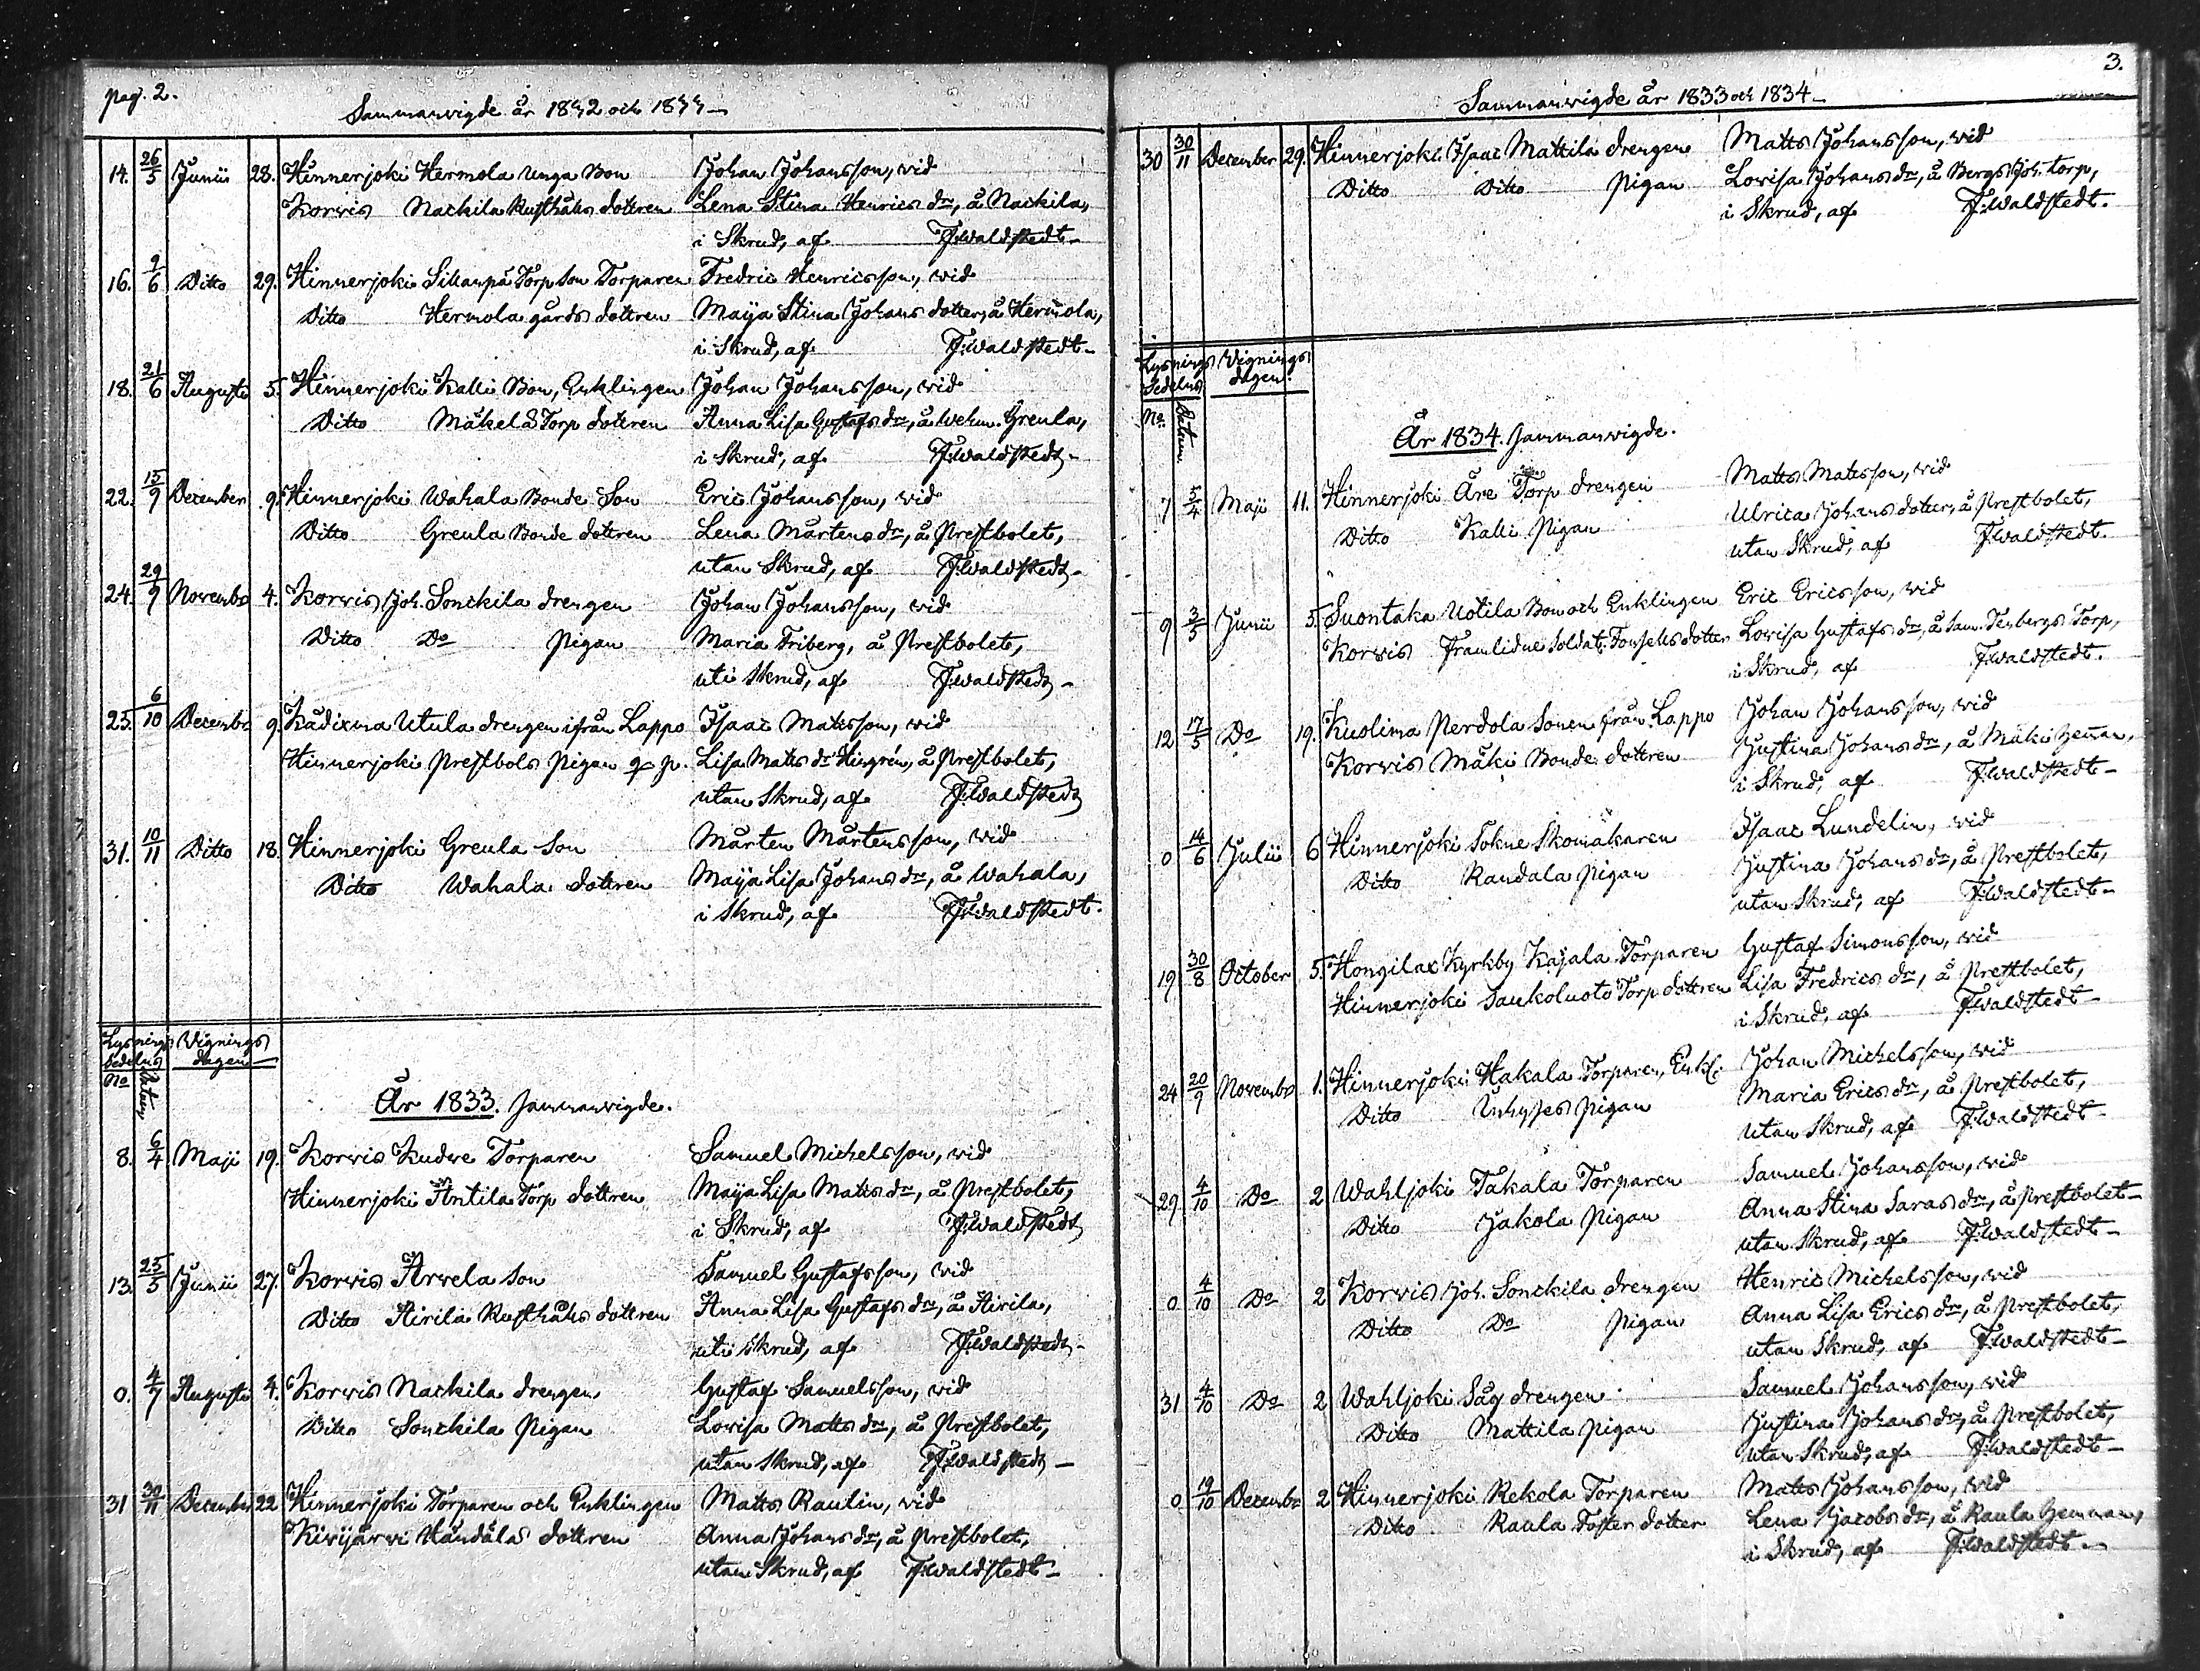 pag. 2.
Sammanvigde år 1832 och 1833
14. 26/5 Junii 28. Hinnerjoki Hermola unga Bon Johan Johansson, vid
Korvis Nackila Rusthålls dottren Lena Stina Henrics dr, å Nackila,
i Skrud, af F. Waldstedt
16. 9/6 Ditto 29. Hinnerjoki Sikanpä Torp Son Torparen Fredric Henricsson, vid
Ditto Hermola gårds dottren Maija Stina Johans dotter, å Hermola,
i Skrud, af F. Waldstedt
18. 21/6 Augusti 5. Hinnerjoki Kalli Bon, Enklingen Johan Johansson, vid
Ditto Mäkelä Torp dottren Anna Lisa Gustafs dr, å Grenla,
i Skrud, af F. Waldstedt
22. 15/9 December 9. Hinnerjoki Wahala Bonde Son Eric Johansson, vid
Ditto Greula Bonde dottren Lena Mårtens dr, å Prestbolet,
utan Skrud, af F. Waldstedt
24. 29/9 November 4. Korvis Joh. Sonckila drengen Johan Johansson, vid
Ditto Do Pigan Maria Friberg, å Prestbolet,
uti Skrud, af F. Waldstedt
25. 6/10 December 9. Kådixma Utula drengen ifrån Lappo Isaac Matsson, vid
Hinnerjoki Prestbols Pigan Lisa Matts dr Hingrén, å Prestbolet,
utan Skrud, af F. Waldstedt
31. 10/11 Ditto 18. Hinnerjoki Greula Son Mårten Mårtensson, vid
Ditto Wahala dottren Maija Lisa Johans dr, å Wahala,
i Skrud, af F. Waldstedt.
Lysnings Vignings
Sedelns dagen
No Datum
År 1833. Sammanvigde.
8. 6/4 Maji 19. Korvis Kudve Torparen Samuel Michelsson, vid
Hinnerjoki Antila Torp dottren Maija Lisa Matts dr, å Prestbolet,
i Skrud, af F. Waldstedt
13. 25/5 Junii 27. Korvis Arvela Son Samuel Gustafsson, vid
Ditto Airila Rusthålls dottren Anna Lisa Gustafs dr, å Airila,
uti skrud, af F. Waldstedt
0. 4/7 Augusti 4. Korvis Nackila drengen Gustaf Samuelsson, vid
Ditto Sonckila Pigan Lovisa Matts dr, å Prestbolet,
utan Skrud, af F. Waldstedt
31 30/11 December 22 Hinnerjoki Torparen och Enklingen Matts Raulin, vid
Kivijärvi Händälas dottren Anna Johans dr, å Prestbolet,
utan Skrud, af F. Waldstedt
3.
Sammanvigde år 1833 och 1834
30 30/11 December 29. Hinnerjoki Isaac Mattila drengen Matts Johansson, vid
Ditto Ditto Pigan Lovisa Johans dr, å Bergs Joh. torp,
i Skrud, af F. Waldstedt.
Lysnings Vignings
Sedelns dagen.
No Datum
År 1834. Sammanvigde.
7 5/4 Maji 11. Hinnerjoki Äre Torp drengen Matts Matsson, vid
Ditto Kalli Pigan Ulrica Johans dotter, å Prestbolet,
utan Skrud, af F. Waldstedt.
9 3/5 Junii 5. Suontaka Uotila Bon och Enklingen Eric Ericsson, vid
Korvis framlidne Soldat dotter Lovisa Gustafs dr, å Torp,
i Skrud, af F. Waldstedt.
12 17/5 Do 19. Kuolima Perdola Sonen från Lappo Johan Johansson, vid
Korvis Mäki Bonde dottren Justina Johans dr, å Mäki Heman,
i Skrud, af F. Waldstedt
0 14/6 Julii 6 Hinnerjoki Sokne Skomakaren Isaac Lundelin, vid
Ditto Randala Pigan Justina Johans dr, å Prestbolet,
utan Skrud, af F. Waldstedt
19 30/8 October 5. Hongilax Kyrkby Kajala Torparen Gustaf Simonsson, vid
Hinnerjoki Saukoluoto Torp dottren Lisa Fredrics dr, å Prestbolet,
i Skrud, af F. Waldstedt
24 20/9 November 1. Hinnerjoki Hakala Torparen, Enkl: Johan Michelsson, vid
Ditto Pigan Maria Erics dr, å Prestbolet,
utan Skrud, af F. Waldstedt
29 4/10 Do 2 Wahljoki Takala Torparen Samuel Johansson, vid
Ditto Jakola Pigan Anna Stina Saras dr, å Prestbolet
utan Skrud, af F. Waldstedt
0 4/10 Do 2 Korvis Joh. Sonckila drengen Henric Michelsson, vid
Ditto Do Pigan Anna Lisa Erics dr, å Prestbolet,
utan Skrud, af F. Waldstedt
31 4/10 Do 2 Wahljoki Såg drengen Samuel Johansson, vid
Ditto Mattila Pigan Justina Johans dr, å Prestbolet,
utan Skrud, af F. Waldstedt
0 19/10 December 2 Hinnerjoki Rekola Torparen Matts Johansson, vid
Ditto Raula Foster dotter Lena Jacobs dr, å Raula Hemman,
i Skrud, af F. Waldstedt